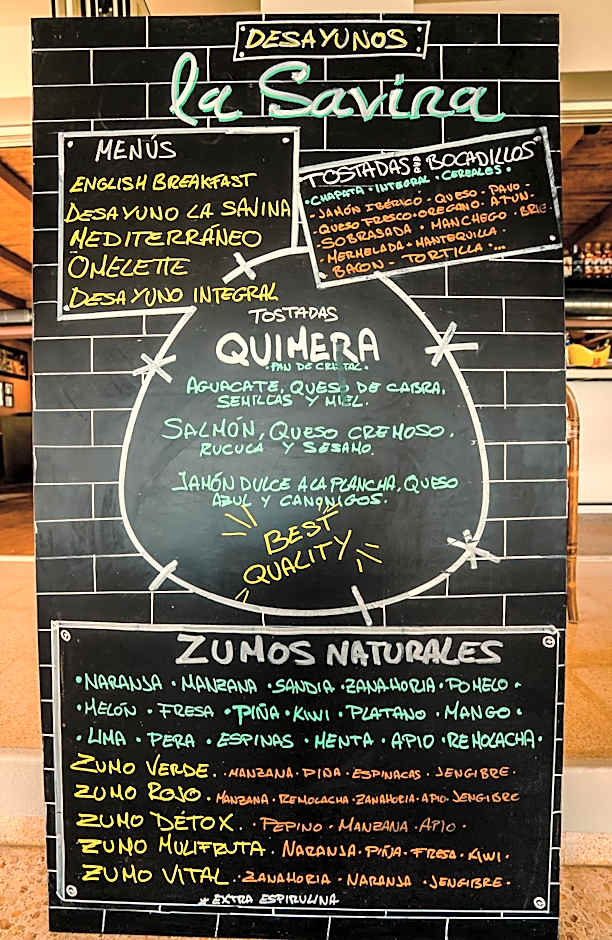 DESAYUNOS
la Savina
MENÚS
ENGLISH BREAKFAST
DESAYUNO LA SAVINA
MEDITERRÁNEO
OMELETTE
DESAYUNO INTEGRAL
TOSTADAS BOCADILLOS
• CHAPATA • INTEGRAL • CEREALES •
- JAMÓN IBÉRICO - QUESO - PAVO -
QUESO FRESCO • OREGANO • ATÚN -
SOBRASADA • MANCHEGO • BRIE
- MERMELADA - MANTEQUILLA -
BACON - TORTILLA -...
TOSTADAS
QUIMERA
• PAN DE CRISTAL •
AGUACATE, QUESO DE CABRA,
SEMILLAS Y MIEL.
SALMÓN, QUESO CREMOSO.
RUCULA Y SESAMO.
JAMÓN DULCE A LA PLANCHA, QUESO
AZUL Y CANONIGOS.
BEST
QUALITY
ZUMOS NATURALES
• NARANJA • MANZANA • SANDIA • ZANAHORIA • POMELO •
• MELÓN • FRESA • PIÑA • KIWI • PLATANO • MANGO •
• LIMA • PERA • ESPINAS • MENTA • APIO • REMOLACHA •
ZUMO VERDE.. MANZANA • PIÑA • ESPINACAS • JENGIBRE •
ZUMO ROJO • MANZANA • REMOLACHA • ZANAHORIA • APIO • JENGIBRE
ZUMO DÉTOX.. PEPINO • MANZANA • APIO •
ZUMO MULIFRUTA. NARANJA • PIÑA • FRESA • KIWI •
ZUMO VITAL.. ZANAHORIA • NARANJA • JENGIBRE •
* EXTRA ESPIRULINA